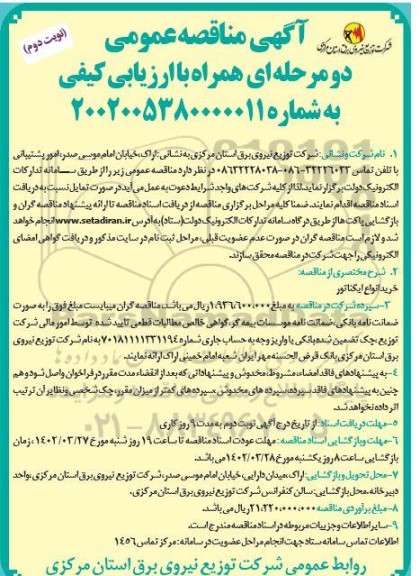 (نوبت دوم)
شرکت توزیع نیروی برق استان مرکزی
آگهی مناقصه عمومی
دو مرحله‌ای همراه با ارزیابی کیفی
به شماره ۲۰۰۲۰۰۵۳۸۰۰۰۰۰۱۱
۱. نام شرکت و نشانی: شرکت توزیع نیروی برق استان مرکزی به نشانی: اراک، خیابان امام موسی صدر، امور پشتیبانی
با تلفن تماس ۳۲۲۲۶۰۲۳-۰۸۶ و ۰۸۶۳۲۲۲۸۰۳۸ در نظر دارد مناقصه عمومی زیر را از طریق سامانه تدارکات
الکترونیک دولت برگزار نماید. لذا از کلیه شرکت‌های واجد شرایط دعوت به عمل می‌آید در صورت تمایل نسبت به دریافت
اسناد مناقصه اقدام نمایند. ضمنا کلیه مراحل برگزاری مناقصه از دریافت اسناد مناقصه تا ارائه پیشنهاد مناقصه گران و
بازگشایی پاکت‌ها از طریق درگاه سامانه تدارکات الکترونیک دولت (ستاد) به آدرس www.setadiran.ir انجام خواهد
شد و لازم است مناقصه گران در صورت عدم عضویت قبلی، مراحل ثبت نام در سایت مذکور و دریافت گواهی امضای
الکترونیکی را جهت شرکت در مناقصه محقق سازند.
۲. شرح مختصری از مناقصه:
خرید انواع ایگناتور
۳-سپرده شرکت در مناقصه به مبلغ ۱،۹۳۶،۶۰۰،۰۰۰ ریال می‌باشد. مناقصه گران میبایست مبلغ فوق را به صورت
ضمانت نامه بانکی، ضمانت نامه موسسات بیمه گر، گواهی خالص مطالبات قطعی تایید شده توسط امور مالی شرکت
توزیع، چک تضمین شده بانکی یا واریز وجه به حساب جاری شماره ۷۰۱۸۱۱۱۱۳۳۱۱۹۴ به نام شرکت توزیع نیروی
برق استان مرکزی بانک قرض الحسنه مهر ایران شعبه امام خمینی اراک ارائه نمایند.
۴- به پیشنهادهای فاقد امضاء، مشروط، مخدوش و پیشنهاداتی که بعد از انقضاء مدت مقرر در فراخوان واصل شود و هم
چنین به پیشنهادهای فاقد سپرده، سپرده های مخدوش، سپرده های کمتر از میزان مقرر، چک شخصی و نظایر آن ترتیب
اثر داده نخواهد شد.
۵-مهلت دریافت اسناد: از تاریخ درج آگهی نوبت دوم به مدت ۶ روز کاری
۶-مهلت و بازگشایی اسناد مناقصه: مهلت عودت اسناد مناقصه تا ساعت ۱۹ روز شنبه مورخ ۱۴۰۲/۰۳/۲۷؛ زمان
بازگشایی ساعت ۸ روز یکشنبه مورخ ۱۴۰۲/۰۳/۲۸ می‌باشد.
۷-محل تحویل و بازگشایی: اراک، میدان دارایی، خیابان امام موسی صدر، شرکت توزیع نیروی برق استان مرکزی، واحد
دبیرخانه. محل بازگشایی: سالن کنفرانس شرکت توزیع نیروی برق استان مرکزی.
۸-مبلغ برآوردی مناقصه ۲۱،۲۲۰،۰۰۰،۰۰۰ ریال می‌باشد.
۹-سایر اطلاعات و جزییات مربوطه در اسناد مناقصه مندرج است.
اطلاعات تماس سامانه ستاد جهت انجام مراحل عضویت در سامانه: مرکز تماس ۱۴۵۶
روابط عمومی شرکت توزیع نیروی برق استان مرکزی